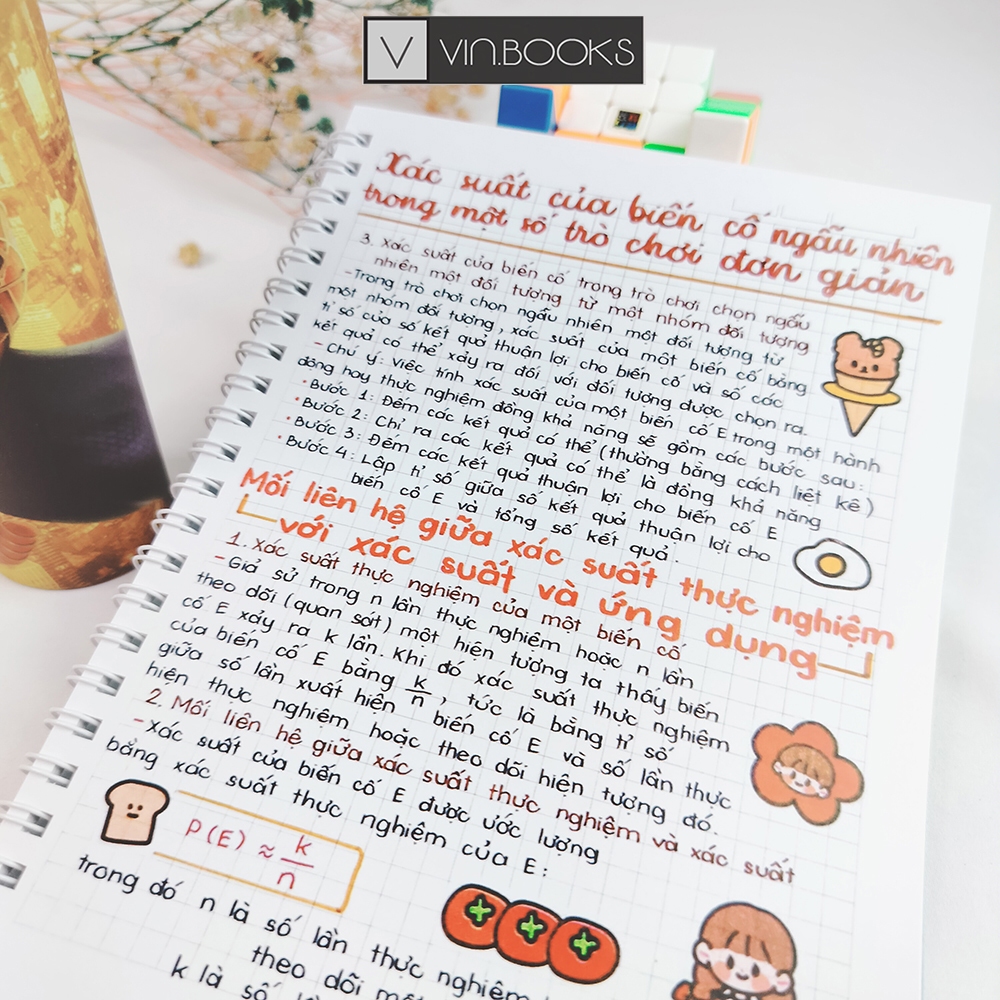 V VIN.BOOKS
Xác suất của biến cố ngẫu nhiên
trong một số trò chơi đơn giản
3. Xác suất của biến cố trong trò chơi chọn ngẫu
nhiên một đối tượng từ một nhóm đối tượng
- Trong trò chơi chọn ngẫu nhiên một đối tượng từ
một nhóm đối tượng, xác suất của một biến cố bằng
tỉ số của số kết quả thuận lợi cho biến cố và số các
kết quả có thể xảy ra đối với đối tượng được chọn ra.
- Chú ý: Việc tính xác suất của một biến cố E trong một hành
động hay thực nghiệm đồng khả năng sẽ gồm các bước sau:
• Bước 1: Đếm các kết quả có thể (thường bằng cách liệt kê)
• Bước 2: Chỉ ra các kết quả có thể là đồng khả năng
• Bước 3: Đếm các kết quả thuận lợi cho biến cố E
• Bước 4: Lập tỉ số giữa số kết quả thuận lợi cho
biến cố E và tổng số kết quả.
Mối liên hệ giữa xác suất thực nghiệm
với xác suất và ứng dụng
1. Xác suất thực nghiệm của một biến cố
- Giả sử trong n lần thực nghiệm hoặc n lần
theo dõi (quan sát) một hiện tượng ta thấy biến
cố E xảy ra k lần. Khi đó xác suất thực nghiệm
của biến cố E bằng k/n, tức là bằng tỉ số
giữa số lần xuất hiện biến cố E và số lần thực
hiện thực nghiệm hoặc theo dõi hiện tượng đó.
2. Mối liên hệ giữa xác suất thực nghiệm và xác suất
- Xác suất của biến cố E được ước lượng
bằng xác suất thực nghiệm của E:
P(E) ≈ k/n
trong đó n là số lần thực nghiệm
theo dõi một
k là số lần